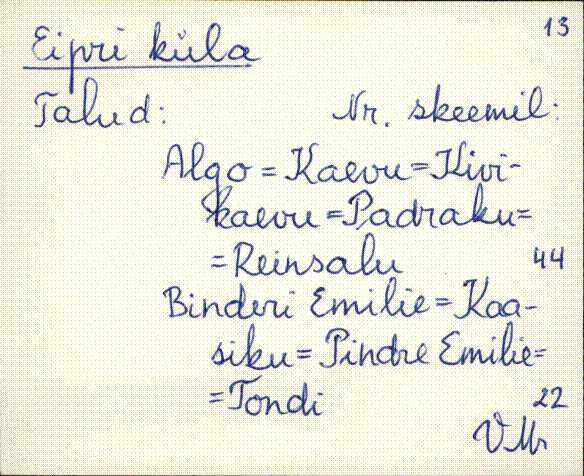 13
Eipri küla
Talud: Nr. skeemil:
Algo = Kaevu = Kivi-
kaevu = Padraku =
= Reinsalu 44
Binderi Emilie = Kaa-
siku = Pindre Emilie =
= Tondi 22
VMr